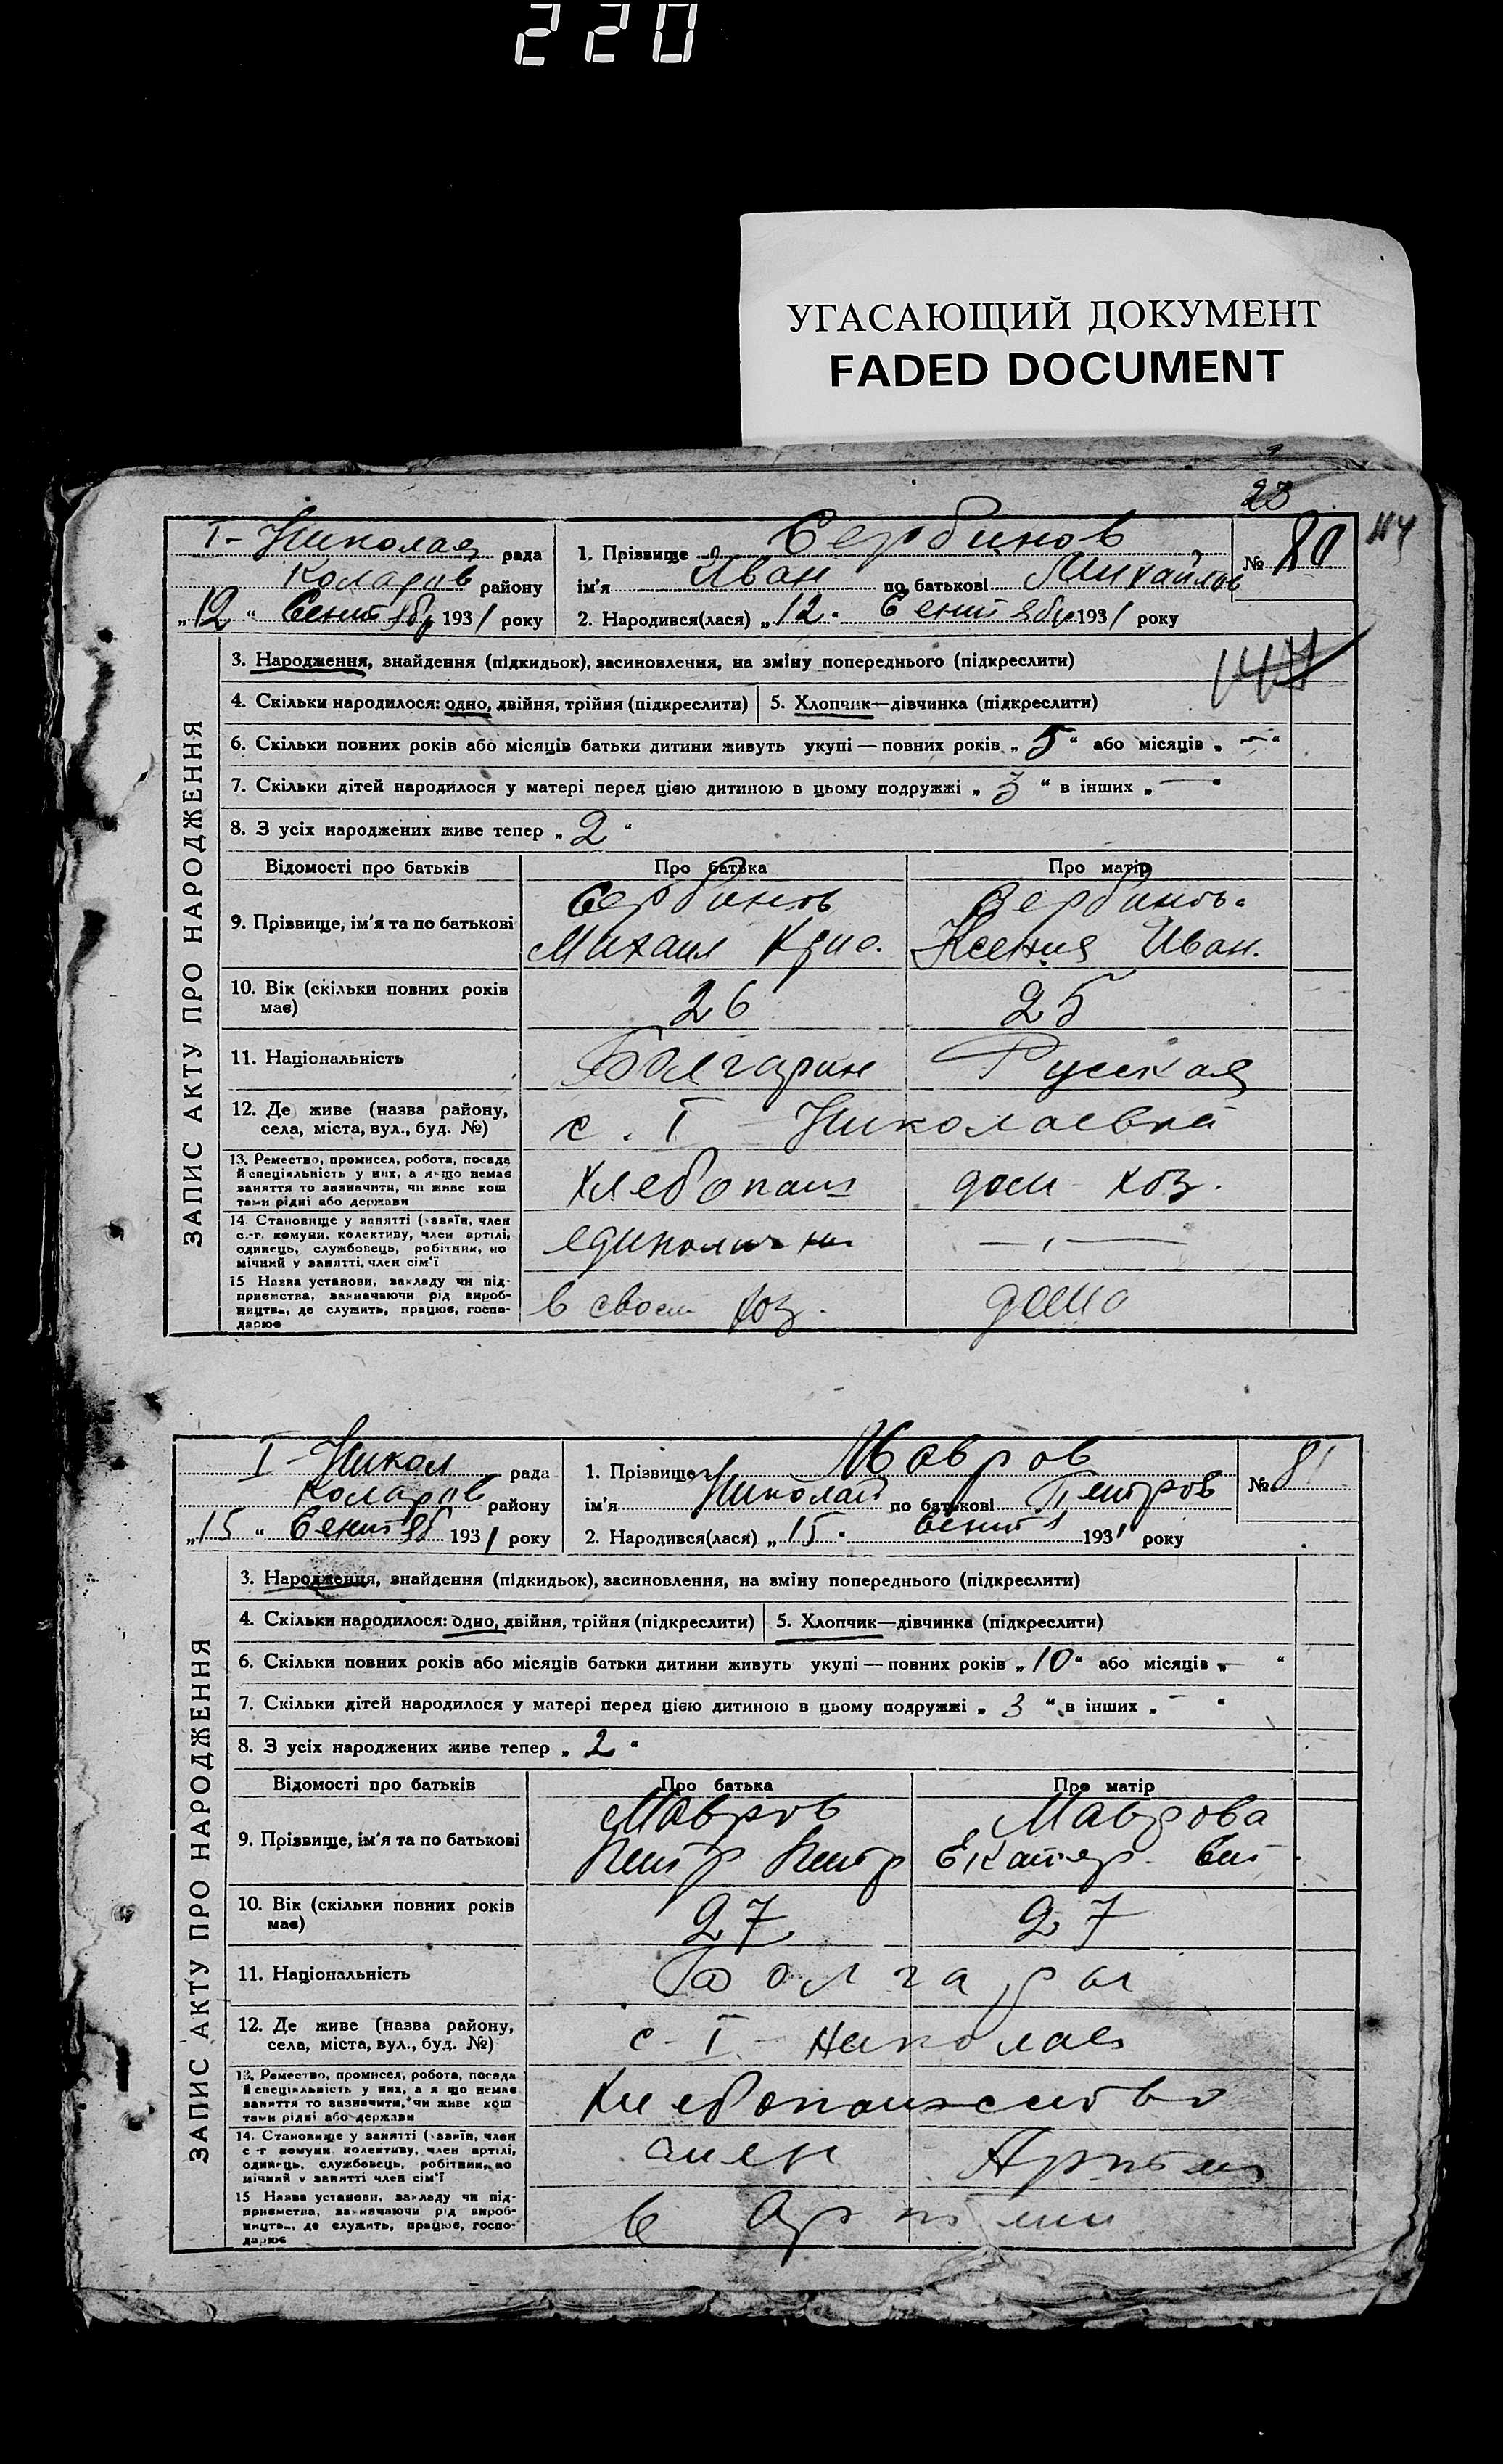 220
УГАСАЮЩИЙ ДОКУМЕНТ
FADED DOCUMENT
23
114
I - Николаев рада
Коларов району
„12“ Сентябр 1931 року
1. Прізвище Сербинов
ім'я Иван по батькові Михайлов
2. Народився(лася) „12“ Сентябр 1931 року
№ 80
ЗАПИС АКТУ ПРО НАРОДЖЕННЯ
3. Народження, знайдення (підкидьок), засиновлення, на зміну попереднього (підкреслити)
4. Скільки народилося: одно, двійня, трійня (підкреслити) 5. Хлопчик—дівчинка (підкреслити)
6. Скільки повних років або місяців батьки дитини живуть укупі — повних років „5“ або місяців „—“
7. Скільки дітей народилося у матері перед цією дитиною в цьому подружжі „3“ в інших „—“
8. З усіх народжених живе тепер „2“
Відомості про батьків Про батька Про матір
9. Прізвище, ім'я та по батькові
Сербинов
Михаил
Сербинов.
Ксения Иван.
10. Вік (скільки повних років має) 26 25
11. Національність Болгарин Русская
12. Де живе (назва району,
села, міста, вул., буд. №) с. I Николаевка
13. Ремество, промисел, робота, посада
й спеціяльність у них, а якщо немає
заняття то зазначити, чи живе кош
тами рідні або держави
Хлебопаш дом хоз.
14. Становище у занятті (хазяїн, член
с.-г. комуни, колективу, член артілі,
одинець, службовець, робітник, по
мічний у занятті, член сім'ї
единоличн —,—
15 Назва установи, закладу чи під-
приємства, зазначаючи рід вироб-
ництва, де служить, працює, госпо-
дарює
в своем хоз. дома
I - Никол рада
Коларов району
„15“ Сентяб 1931 року
1. Прізвище Мавров
ім'я Николай по батькові Петров
2. Народився(лася) „15“ Сент 1931 року
№ 81
ЗАПИС АКТУ ПРО НАРОДЖЕННЯ
3. Народження, знайдення (підкидьок), засиновлення, на зміну попереднього (підкреслити)
4. Скільки народилося: одно, двійня, трійня (підкреслити) 5. Хлопчик—дівчинка (підкреслити)
6. Скільки повних років або місяців батьки дитини живуть укупі — повних років „10“ або місяців „—“
7. Скільки дітей народилося у матері перед цією дитиною в цьому подружжі „3“ в інших „—“
8. З усіх народжених живе тепер „2“
Відомості про батьків Про батька Про матір
9. Прізвище, ім'я та по батькові
Мавров
Петр Петр
Маврова
Екатер.
10. Вік (скільки повних років має) 27 27
11. Національність Болгары
12. Де живе (назва району,
села, міста, вул., буд. №) с - I - Николаев
13. Ремество, промисел, робота, посада
й спеціяльність у них, а якщо немає
заняття то зазначити, чи живе кош
тами рідні або держави
Хлебопашество
14. Становище у занятті (хазяїн, член
с.-г. комуни, колективу, член артілі,
одинець, службовець, робітник, по
мічний у занятті член сім'ї
член Артели
15 Назва установи, закладу чи під-
приємства, зазначаючи рід вироб-
ництва, де служить, працює, госпо-
дарює
в Артели